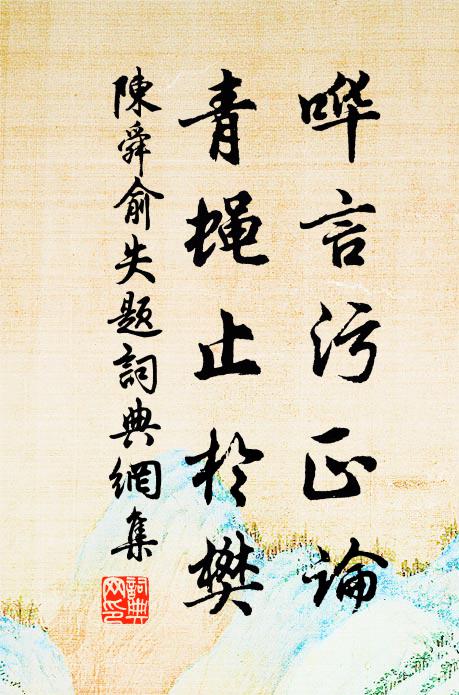 哗言污正论
青蝇止於樊
陳舜俞失题詞典網集
詞典